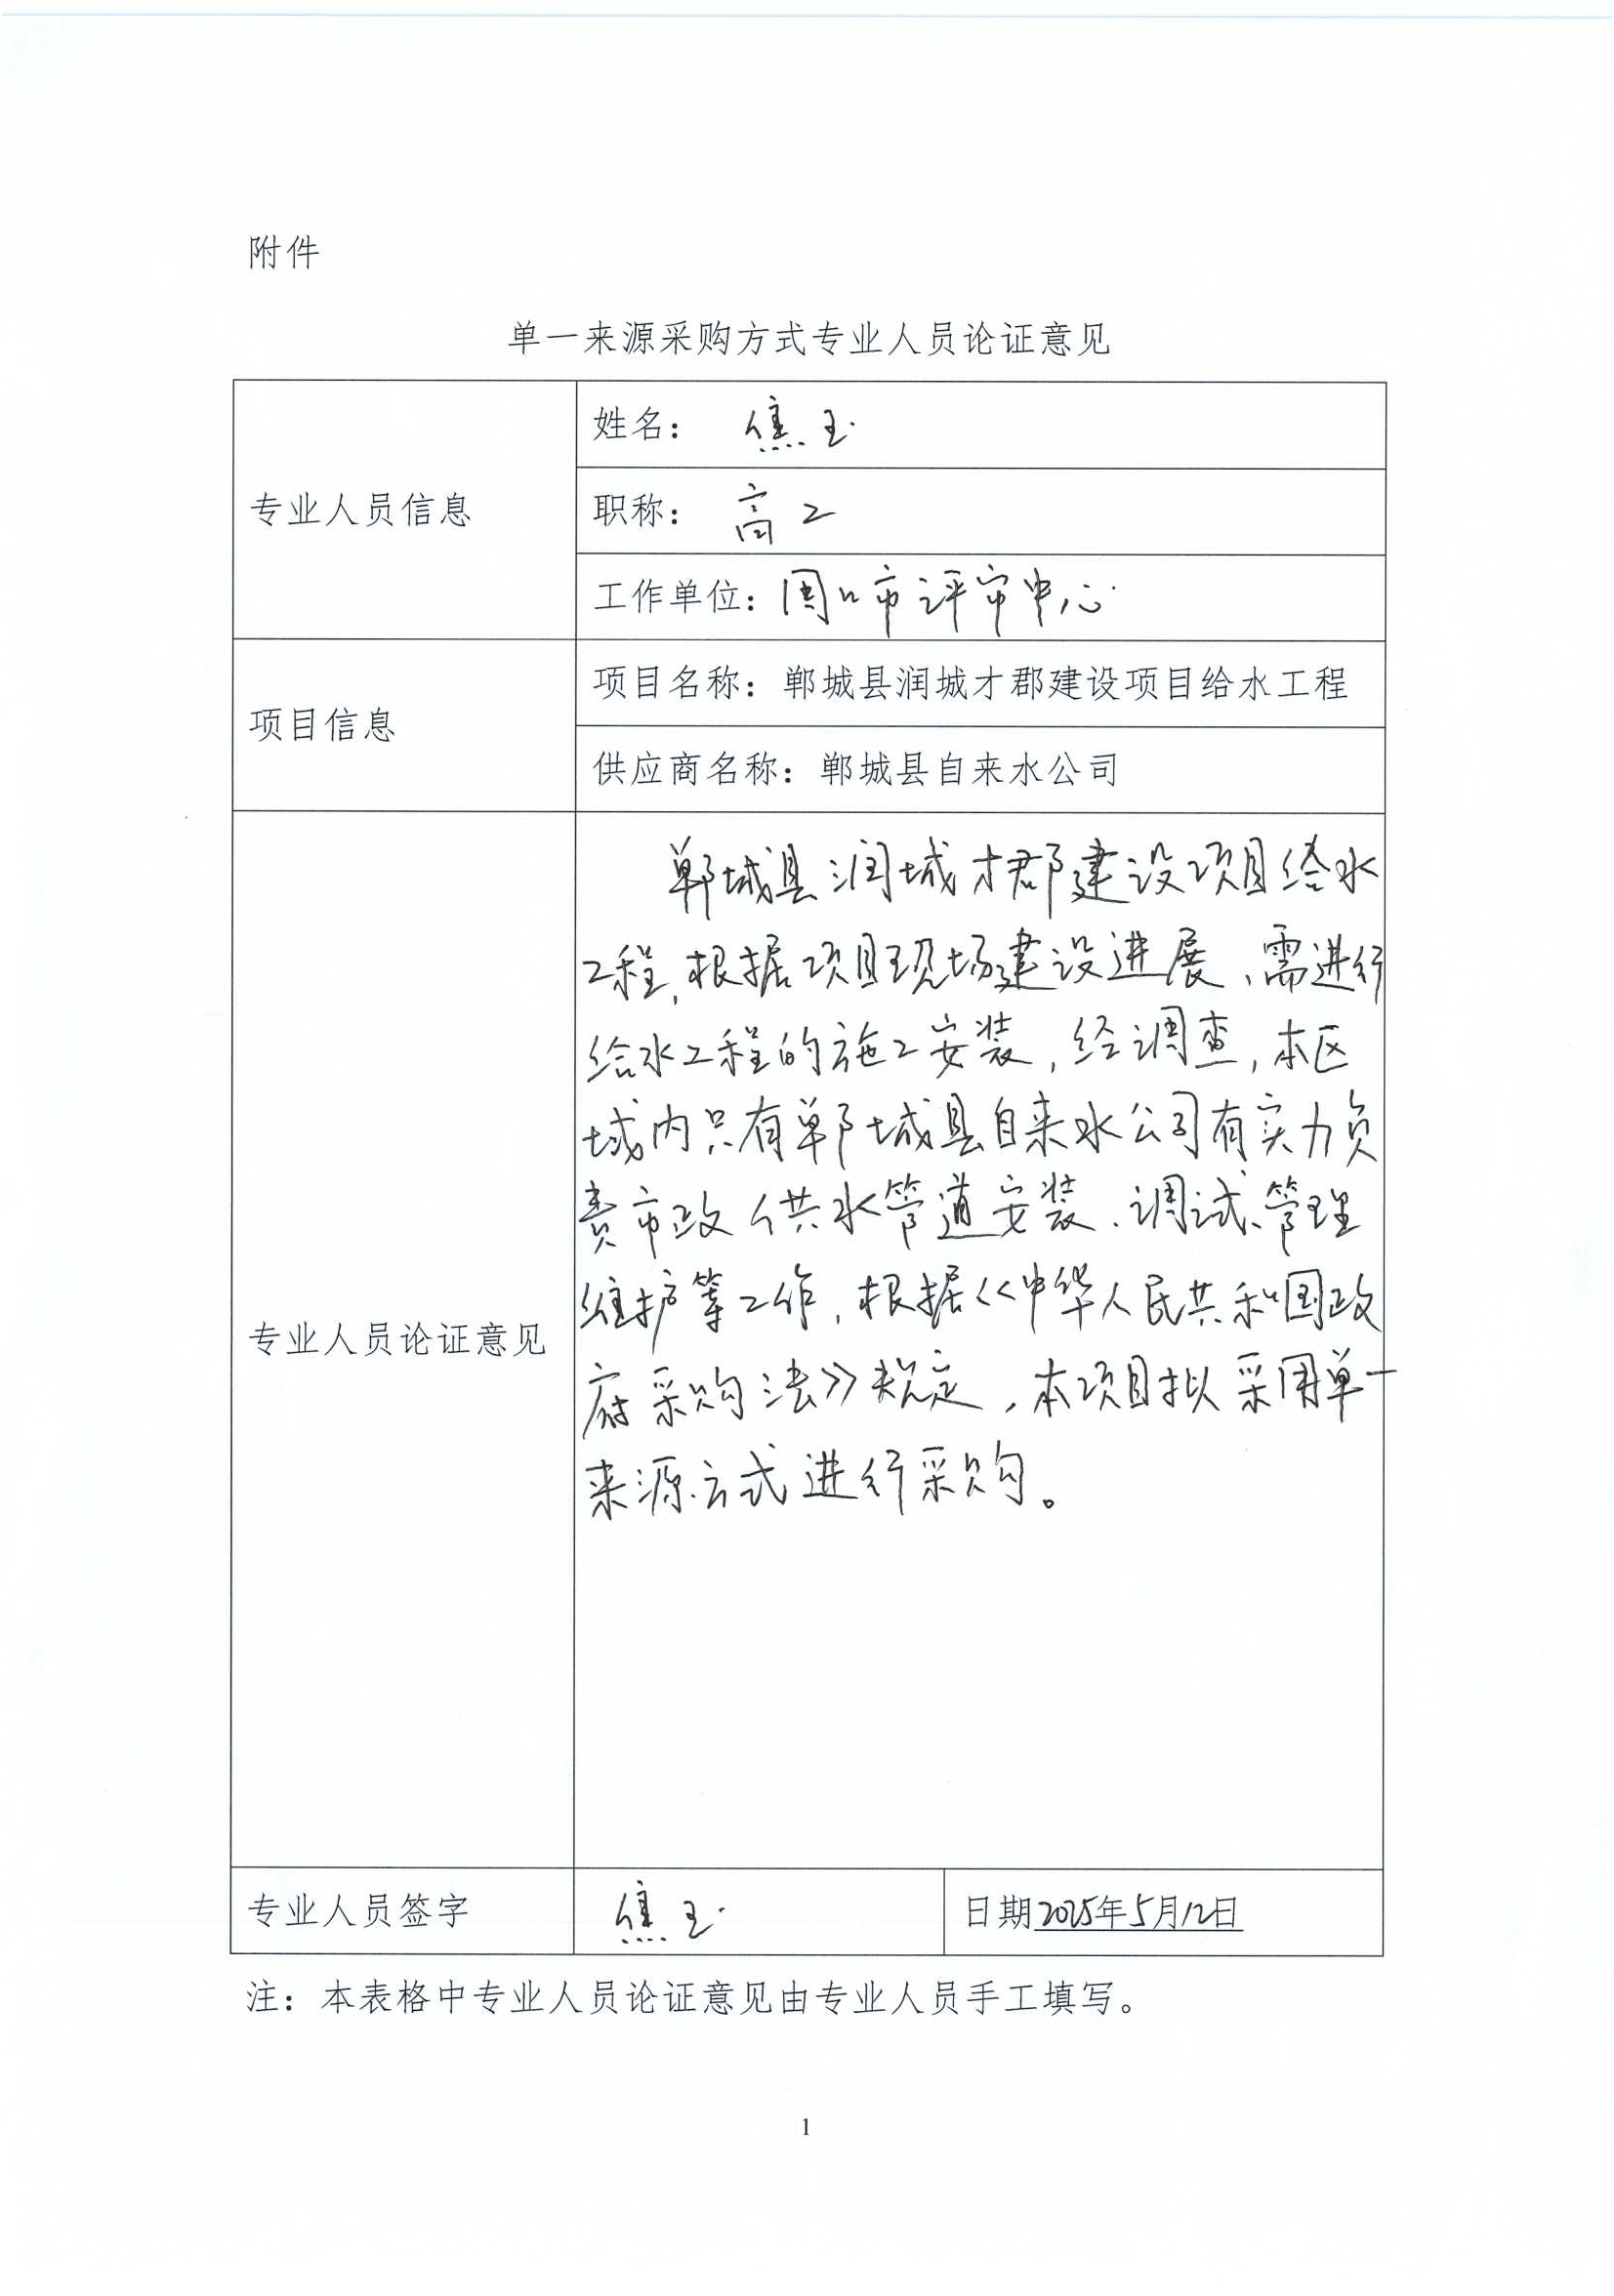 附件
单一来源采购方式专业人员论证意见
专业人员信息
姓名： 焦玉
职称： 高工
工作单位：周口市评审中心
项目信息
项目名称：郸城县润城才郡建设项目给水工程
供应商名称：郸城县自来水公司
专业人员论证意见
郸城县润城才郡建设项目给水
工程，根据项目现场建设进展、需进行
给水工程的施工安装，经调查，本区
域内只有郸城县自来水公司有实力负
责市政供水管道安装、调试、管理
维护等工作，根据《中华人民共和国政
府采购法》规定，本项目拟采用单一
来源方式进行采购。
专业人员签字
焦玉
日期2025年5月12日
注：本表格中专业人员论证意见由专业人员手工填写。
1